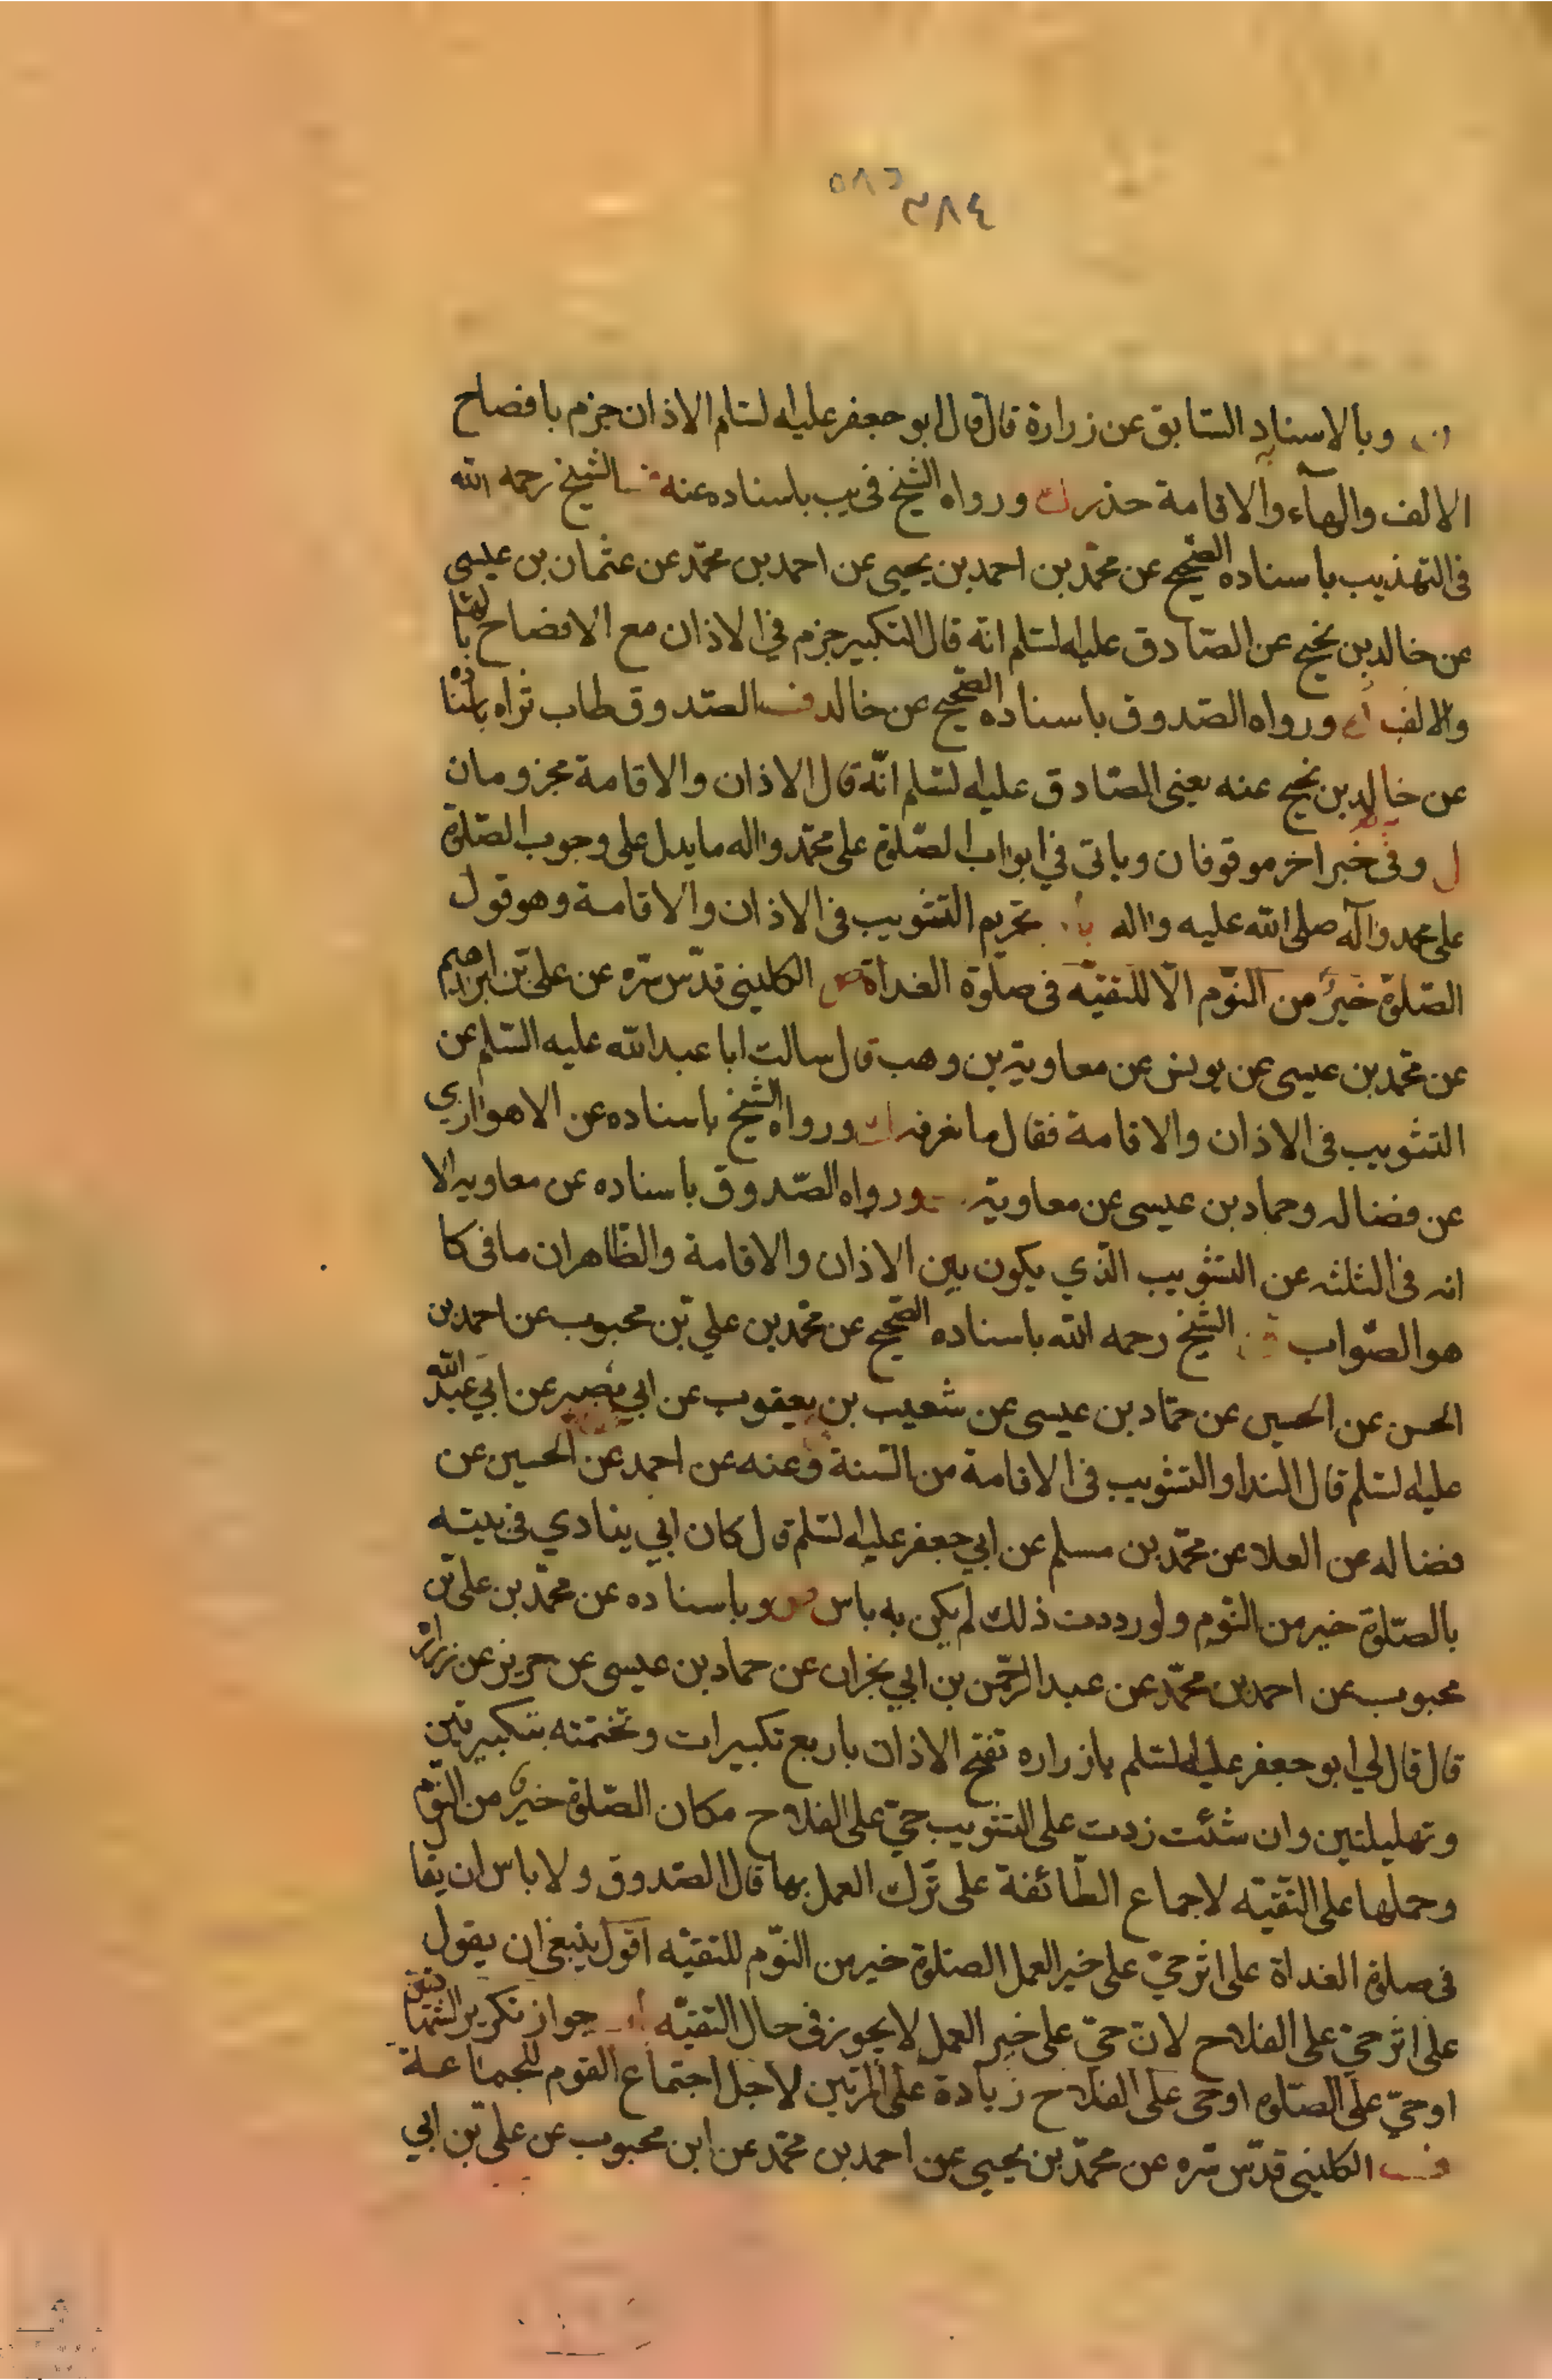 ٥٨٢
٣٨٤
وبالاسناد السّابق عن زرارة قال قال ابو جعفر عليه لسّلم الاذان جزم بافصاح
الالف والهآء والاقامة حذر ورواه الشّيخ فى يب باسناده عنه الشّيخ رحمه اللّه
فى التهذيب باسناده الصّحيح عن محمّد بن احمد بن يحيى عن احمد بن محمّد عن عثمان بن عيسى
عن خالد بن نجيح عن الصّادق عليه لسّلم انّه قال التكبير جزم في الاذان مع الافصاح بالها
والالف ورواه الصّدوق باسناده الصّحيح عن خالد الصّدوق طاب ثراه باسناده
عن خالد بن نجيح عنه يعنى الصّادق عليه لسّلم انّه قال الاذان والاقامة مجزومان
ل وفى خبر اخر موقوفان وياتى في ابواب الصّلوة على محمّد واله ما يدل على وجوب الصّلوة
على محمد وآله صلى اللّه عليه واله تحريم التثويب فى الاذان والاقامة وهو قول
الصّلوة خيرٌ من النّوم الّا للتقيّه فى صلوة الغداة الكلينى قدّس سّره عن علىّ بن ابرهيم
عن محمّد بن عيسى عن يونس عن معاوية بن وهب قال سالت ابا عبد اللّه عليه السّلم عن
التثويب فى الاذان والاقامة فقال ما نعرفه ورواه الشّيخ باسناده عن الاهوازي
عن فضاله وحماد بن عيسى عن معاوية ورواه الصّدوق باسناده عن معاويه الا
انه فى الثلثه عن التثويب الّذي يكون بين الاذان والاقامة والظّاهران ما فى كا
هو الصّواب الشّيخ رحمه اللّه باسناده الصّحيح عن محمّد بن علي بّن محبوب عن احمد بن
الحسن عن الحسين عن حمّاد بن عيسى عن شعيب بن يعقوب عن ابي بصير عن ابي عبد اللّه
عليه لسّلم قال الندا والتثويب فى الاقامة من السّنة وعنه عن احمد عن الحسين عن
فضاله عن العلا عن محمّد بن مسلم عن ابي جعفر عليه لسّلم قال كان ابي ينادي فى بيته
بالصّلوة خير من النّوم ولو رددت ذلك لم يكن به باس وباسناده عن محمّد بن علىّ بن
محبوب عن احمد بن محمّد عن عبد الرّحمن بن ابي نجران عن حماد بن عيسى عن حريز عن زرارة
قال قال لي ابو جعفر عليه لسّلم يازراره تفتح الاذان باربع تكبيرات وتختمته بتكبيرتين
وتهليلتين وان شئت زدت على التثويب حيّ على الفلاح مكان الصّلوة خيرٌ من النّوم
وحملها على التّقيّه لاجماع الطّائفة على تّرك العمل بها قال الصّدوق ولا باس ان يقا
فى صلوة الغداة على اثر حيّ على خير العمل الصّلوة خير من النّوم للتقيّه اقول ينبغى ان يقول
على اثر حيّ على الفلاح لانّ حيّ على خير العمل لا يجوز فى حال التقيّه جواز تكرير الشّهادتين
او حيّ على الصّلوه او حى على الفلاح زيادة على المرّتين لاجل اجتماع القوم للجماعة
الكلينى قدّس سّره عن محمّد بن يحيى عن احمد بن محمّد عن ابن محبوب عن علىّ بن ابي